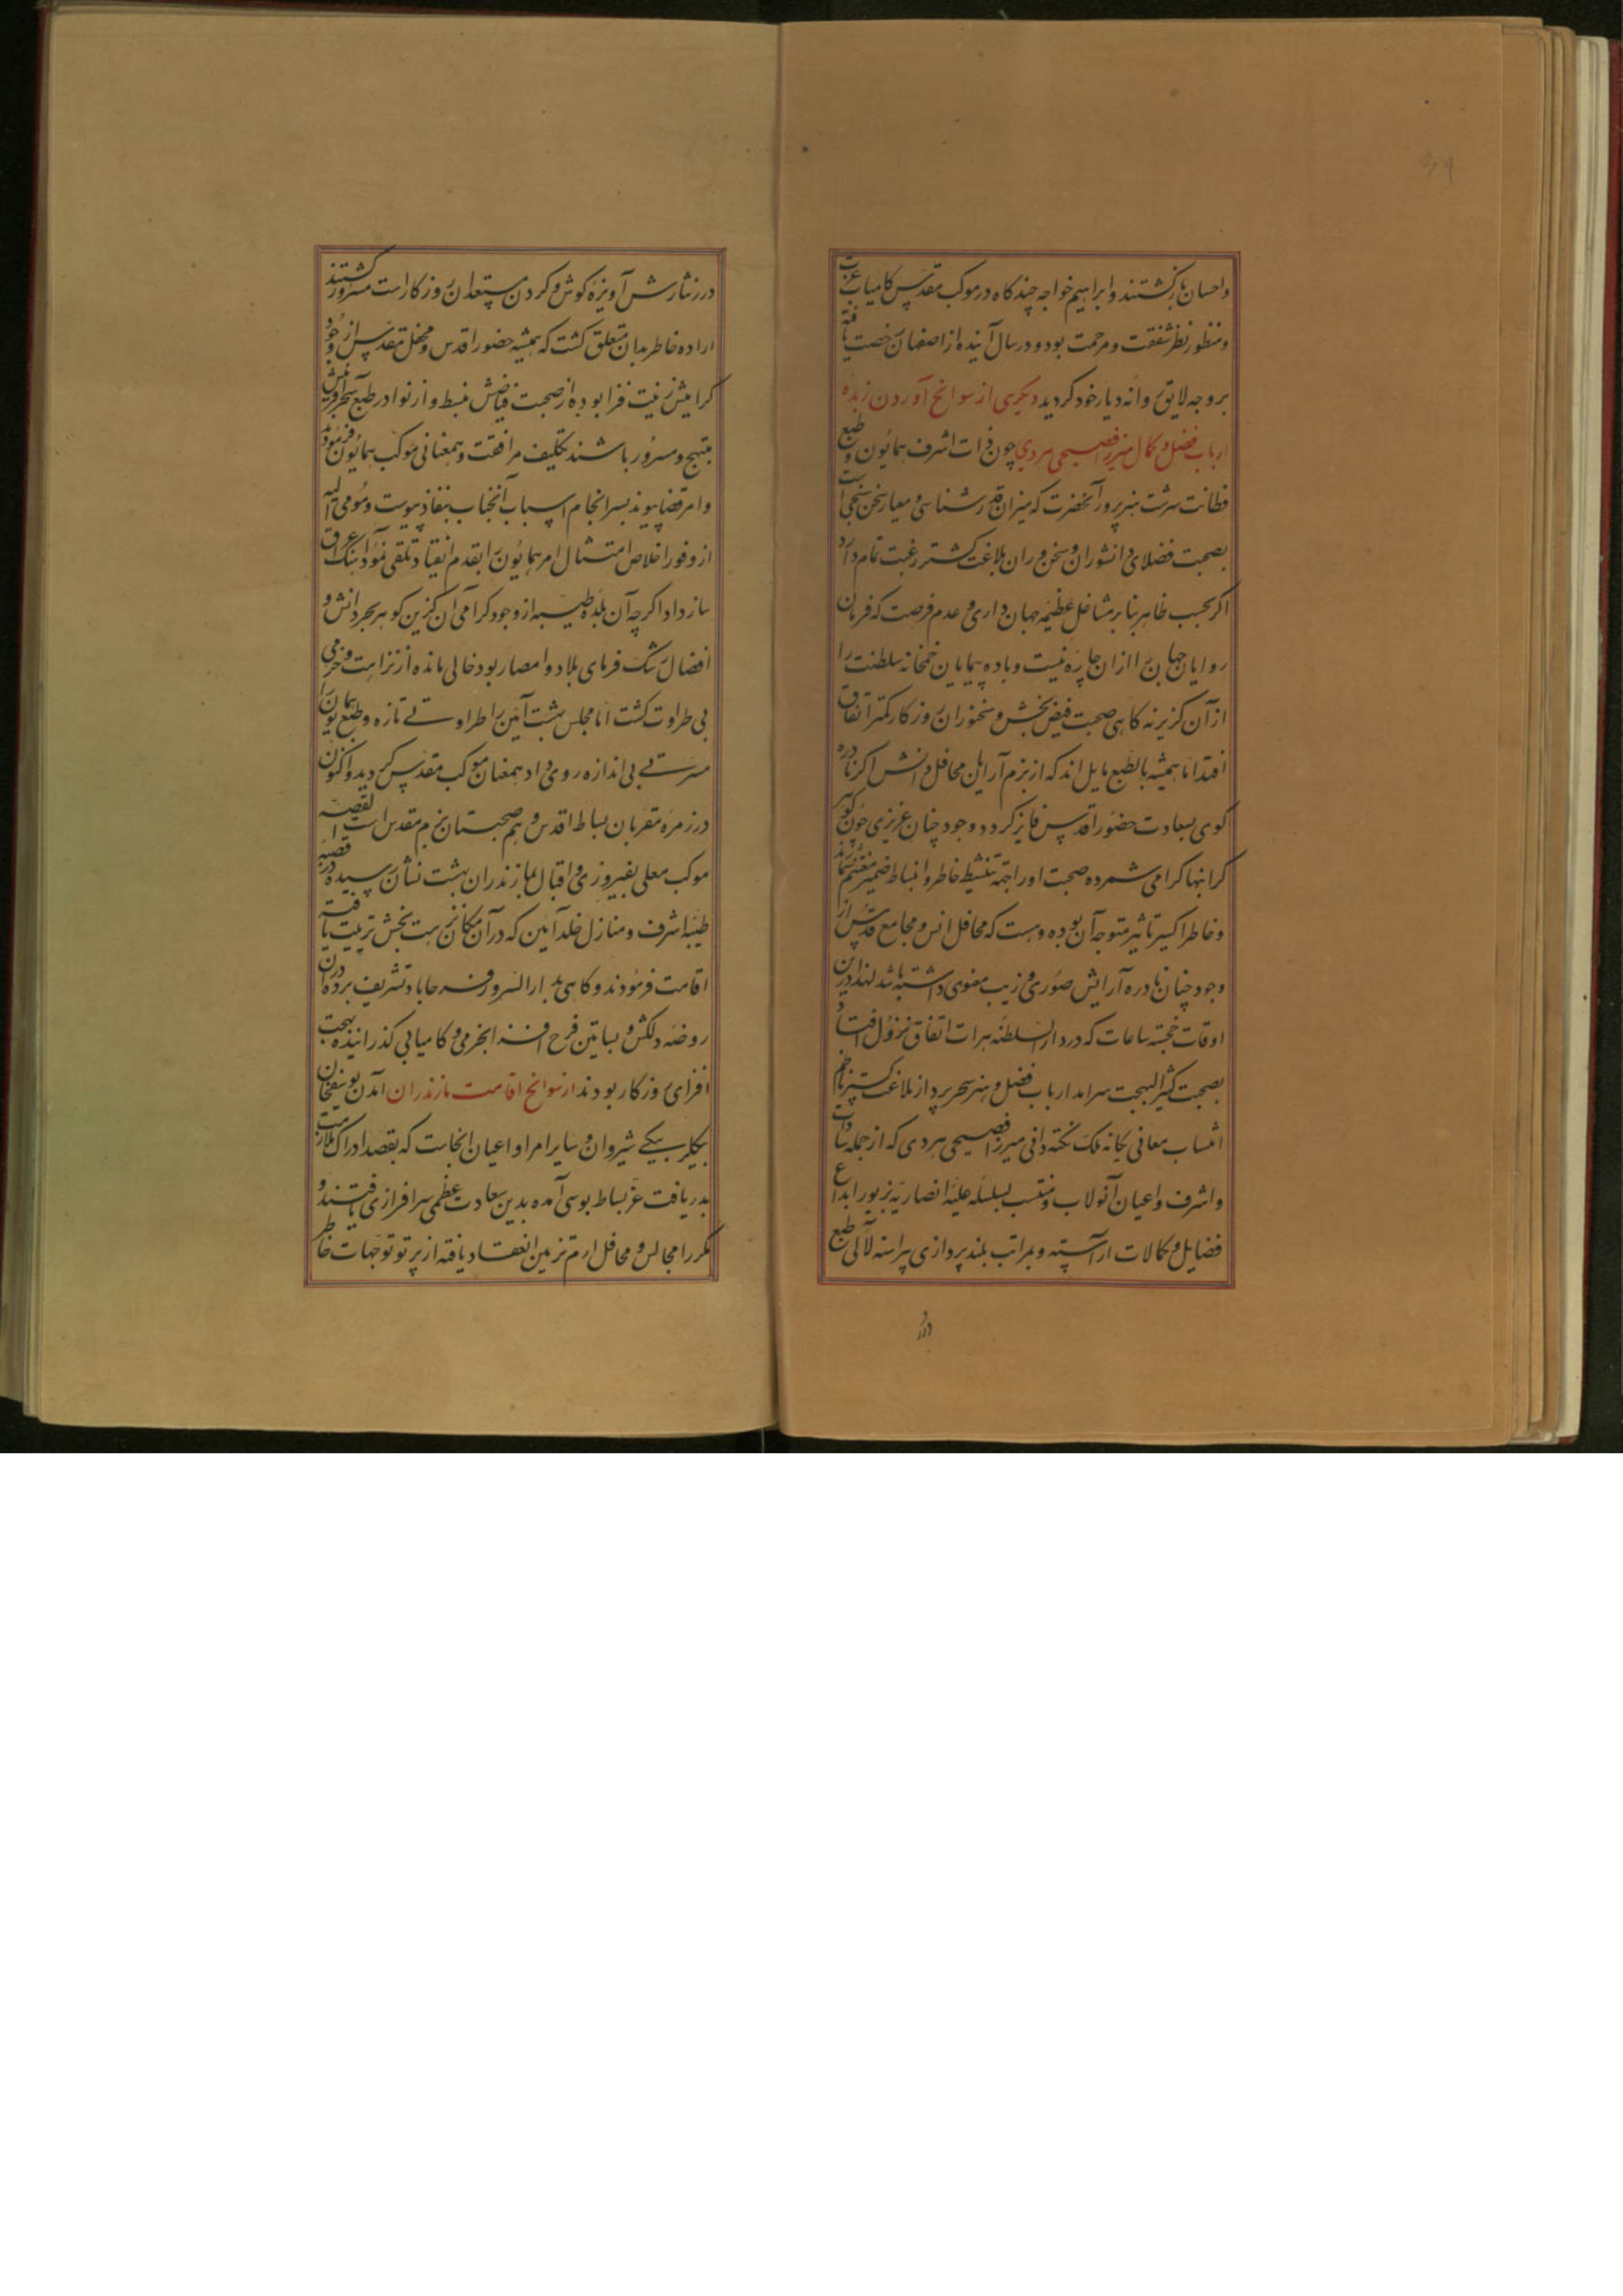 واحسان بازگشتند و ابراهیم خواجه چند گاه در موکب مقدس کامیاب عزت
و منظور نظر شفقت و مرحمت بود و در سال آینده از اصفهان رخصت یافته
بر وجه لایق روانه دیار خود کردید دیکری از سوانح آوردن زبده
ارباب فضل و کمال میرزا فصیحی هروی چون ذات اشرف همایون و طبع
فطانت سرشت هنرپرور آنحضرت که میزان قدرشناسی و معیار سخن سنجی است
بصحبت فضلای دانشوران و سخن وران بلاغت کستر رغبت تمام دارد
اکر بحسب ظاهر بنابر مشاغل عظیمه جهان داری و عدم فرصت که فرمان
روایان جهان را ازان چاره نیست و باده پیمایان خمخانه سلطنت را
از آن کزیر نه کاهی صحبت فیض بخش سخنوران روزکار کمتر اتفاق
افتد اما همیشه بالطبع مایل اند که از بزم آرایان محافل دانش اکر نادره
کوی بسعادت حضور اقدس فایز کردد وجود چنان عزیزی چون کوهر
کرانبها کرامی شمرده صحبت او را جهة تنشیط خاطر و انبساط ضمیر مغتنم شمارند
و خاطر اکسیر تاثیر متوجه آن بوده و هست که محافل انس و مجامع قدس از
وجود چنان نادره آرایش صوری و زیب معنوی داشته باشد لهذا درین
اوقات خجسته ساعات که در دار السلطنه هرات اتفاق نزول افتاد
بصحبت کثیر البهجت سرامد ارباب فضل و هنر سحرپرداز بلاغت کستر
انتساب معانی یکانه ملک نکته دانی میرزا فصیحی هروی که از جمله سادات
و اشرف و اعیان آنولایت و منتسب بسلسله علیه انصاریه بزیور ابداع
فضایل و کمالات آراسته و بمراتب بلندپردازی پیراسته لآلی طبع
درر
درر نثارش آویزه کوش و کردن مستعدان روزکارست مسرور کشتند
اراده خاطر بدان متعلق کشت که همیشه حضور اقدس و محفل مقدس از وجود
کرامیش زینت فزا بوده از صحبت فیاضش منبسط و از نوادر طبع سحرآفرینش
مبتهج و مسرور باشند تکلیف مرافقت و همعنانی موکب همایون فرمودند
و امر قضا پیوند بسرانجام اسباب آنجناب بنفاذ پیوست و مومی الیه
از وفور اخلاص امتثال امر همایون را بقدم انقیاد تلقی نموده آهنک عراق
ساز داد اکرچه آن بلده طیبه از وجود کرامی آن کزین کوهر بحر دانش و
افضال رشک فرمای بلاد و امصار بود خالی مانده از نزاهت و خرمی
بی طراوت کشت اما مجلس بهشت آیین را طراوتی تازه و طبع همایون را
مسرتی بی اندازه روی داد همعنان موکب مقدس کردید و اکنون
در زمره مقربان بساط اقدس و هم صحبتان بزم مقدس است القصه
موکب معلی بفیروزی و اقبال بمازندران بهشت نشان رسیده در قصبه
طیبه اشرف و منازل خلدآیین که در آن مکان نزهت بخش ترتیب یافته
اقامت فرمودند و کاهی بدار السرور فرحاباد تشریف برده در آن
روضه دلکش و بساتین فرح افزا بخرمی و کامیابی کذرانیده بهجت
افزای روزکار بودند از سوانح اقامت مازندران آمدن یوسفخان
بیکلربیکی شیروان و سایر امرا و اعیان انجاست که بقصد ادراک ملازمت
بدریافت عز بساط بوسی آمده بدین سعادت عظمی سرافرازی یافتند و
مکررا مجالس و محافل ارم تزیین انعقاد یافته از پرتو توجهات خاطر